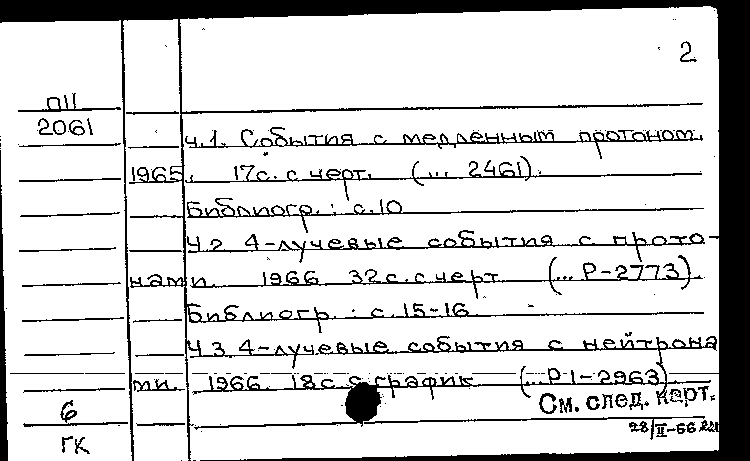 2
П11
2061
Ч.1. События с медленным протоном.
1965. 17 с. с черт. (... 2461).
Библиогр.: с. 10
Ч.2 4-лучевые события с прото-
нами. 1966 32 с. с черт (... Р-2773).
Библиогр.: с. 15-16
Ч.3. 4-лучевые события с нейтрона
ми. 1966. 18 с. с график (... Р1-2963).
См. след. карт.
6
ГК
28/II-66